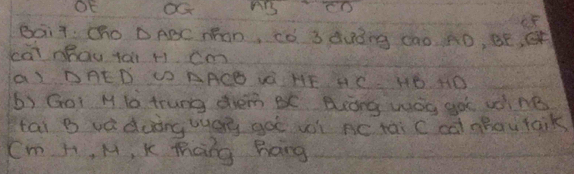 OE OG AB CD
Bài 7: Cho Δ ABC nhọn, có 3 đường cao AD, BE, CF
cắt nhau tại H. Cm
a) ΔAED ∽ ΔACB và HE HC HB HD
b) Gọi M là trung điểm BC đường vuông góc với AB
tại B và đường vuông góc với AC tại C cắt nhau tại K
Cm H, M, K thẳng hàng